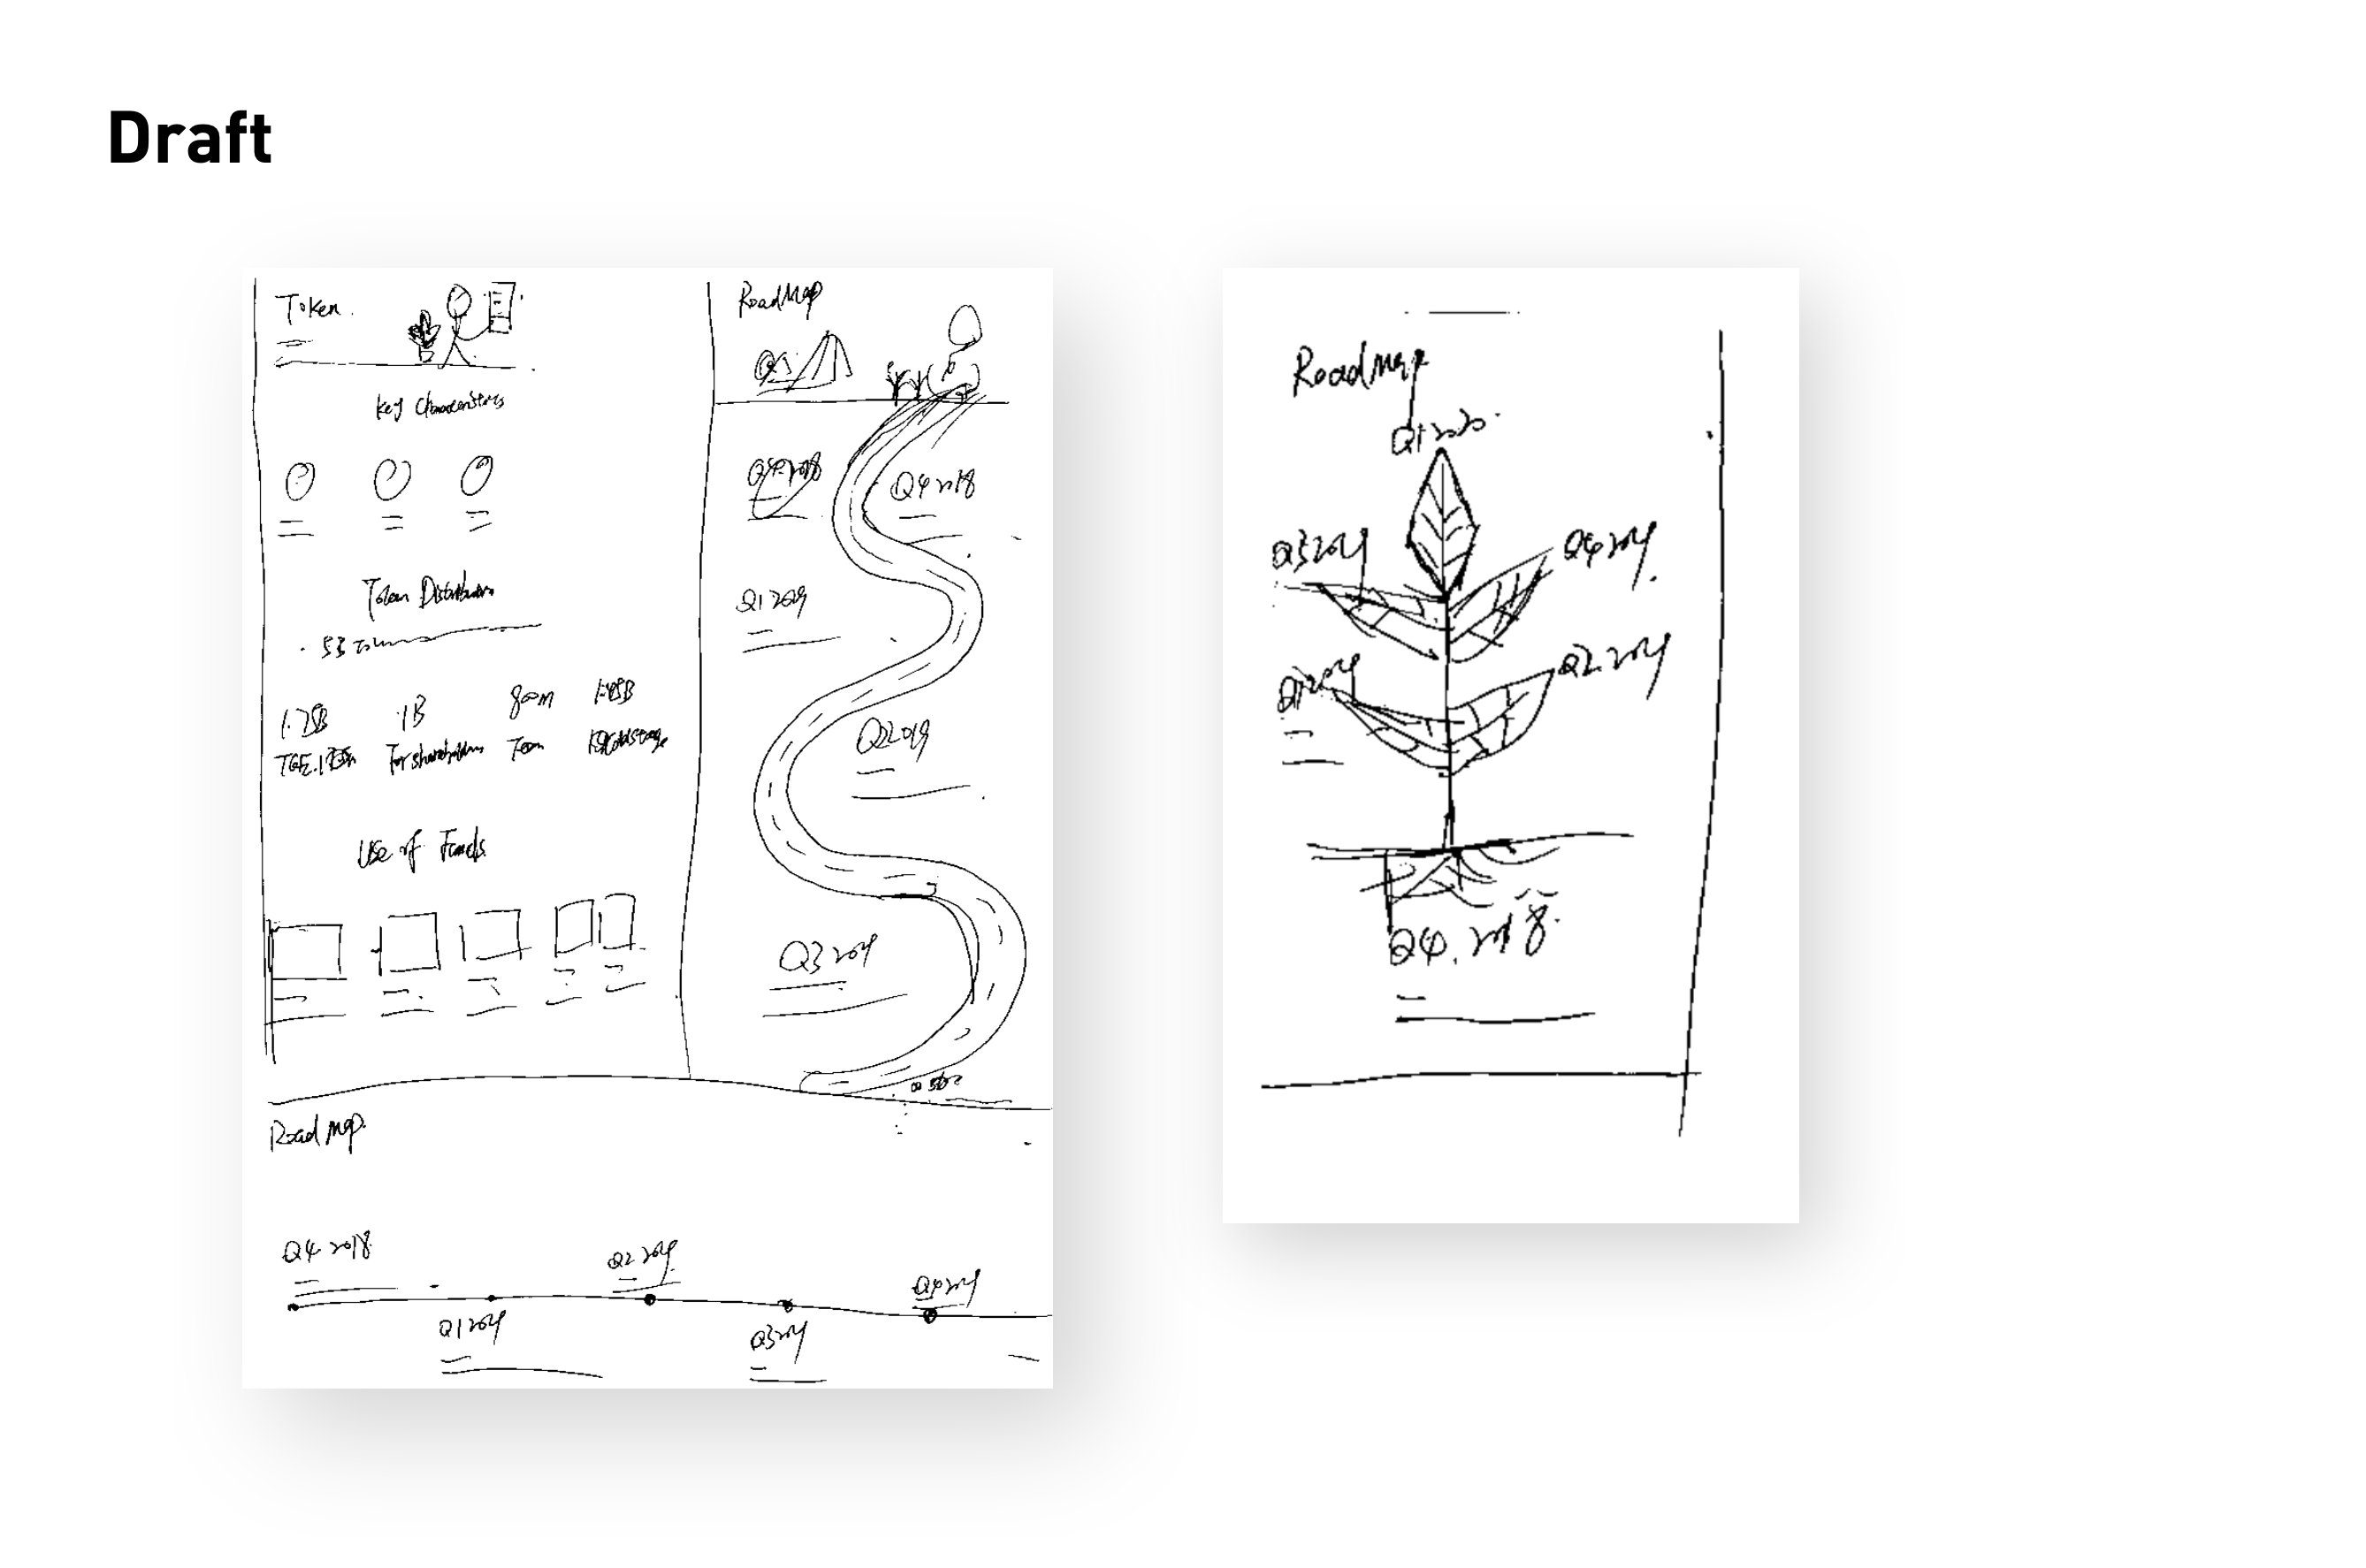 Draft
Token
Key Characteristics
Token Distribution
5B Token
1.75B 1B 800m 1.45B
TGE For shareholders Team
Use of Funds
RoadMap
Q4 2018
Q1 2019
Q2 2019
Q3 2019
Road Map
Q4 2018
Q2 2019
Q4 2019
Q1 2019
Q3 2019
Road Map
Q1 2020
Q3 2019
Q4 2019
Q1 2019
Q2 2019
Q4. 2018